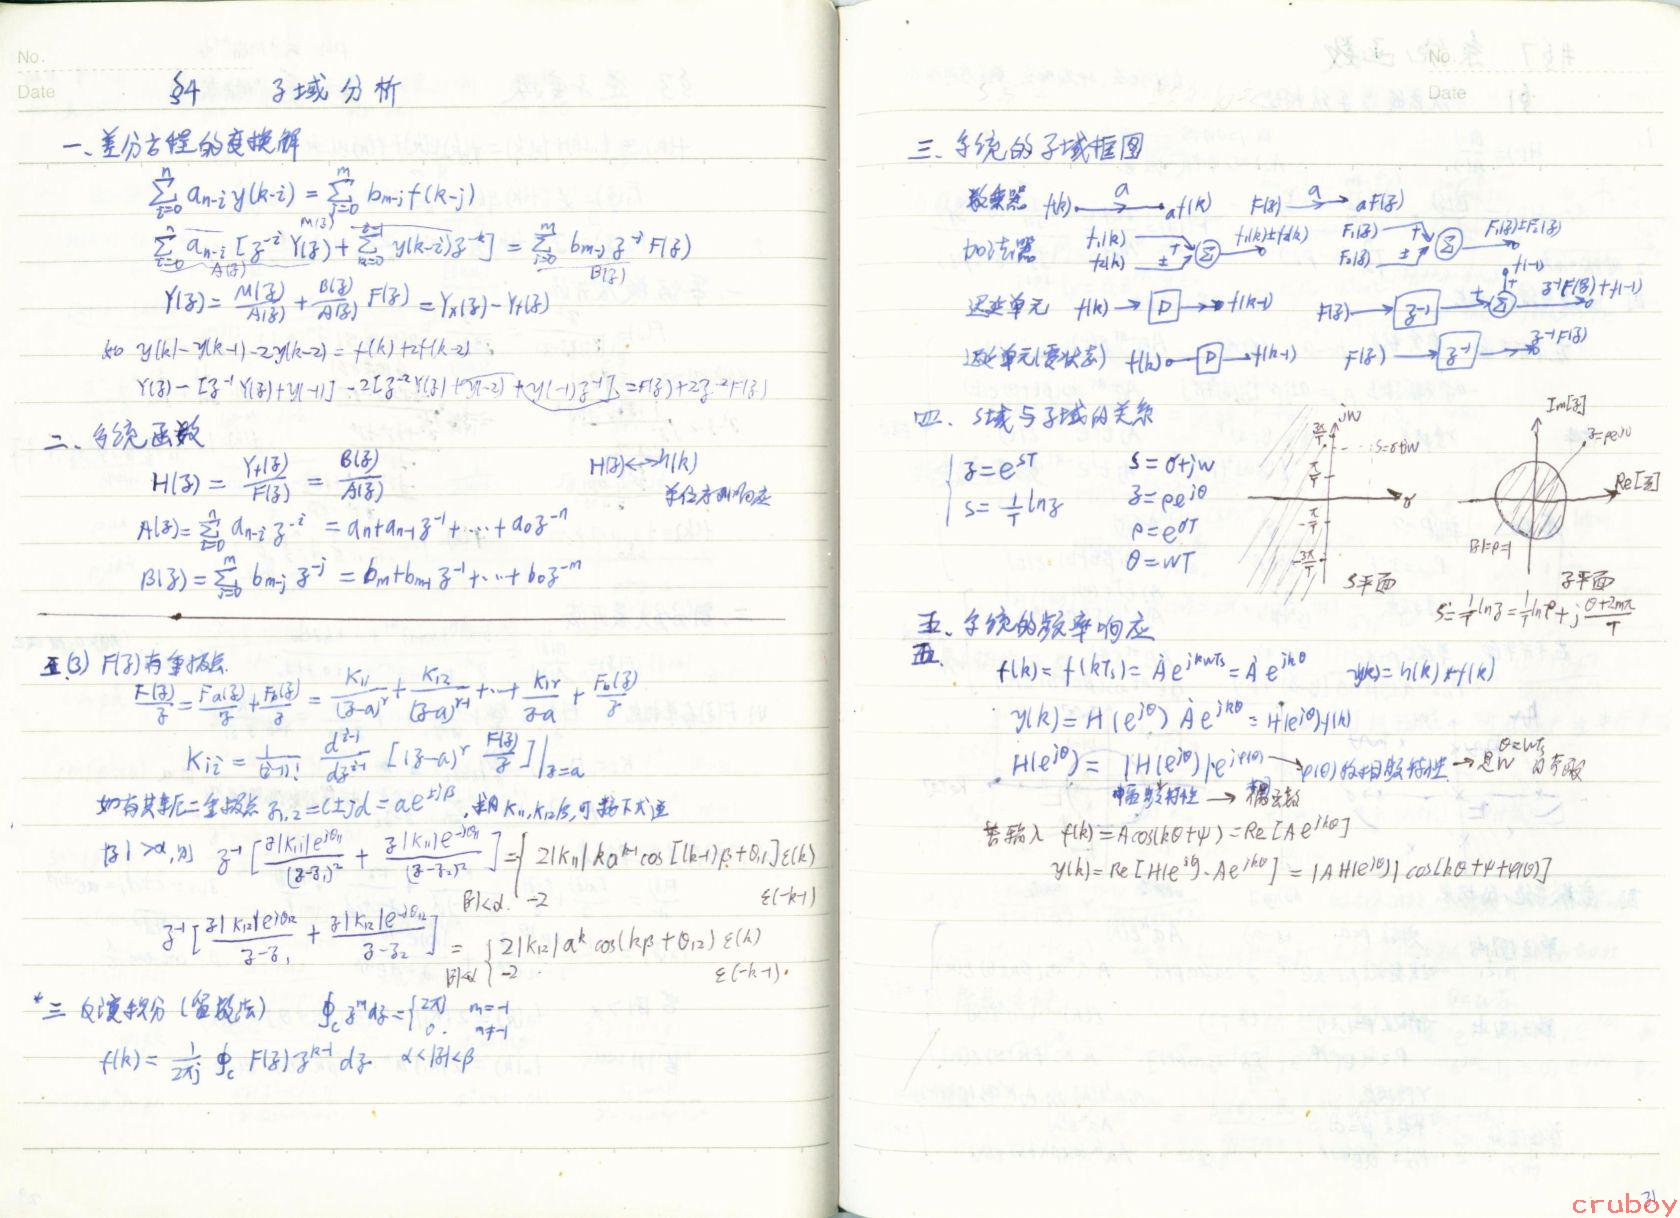 No.
Date
§4 Z域分析
一、差分方程的变换解
∑_{i=0}^{n} a_{n-i} y(k-i) = ∑_{j=0}^{m} b_{m-j} f(k-j)
M(z)
∑_{i=0}^{n} a_{n-i} [z^{-i} Y(z) + ∑_{k=0}^{i-1} y(k-i) z^{-k}] = ∑_{j=0}^{m} b_{m-j} z^{-j} F(z)
A(z) B(z)
Y(z) = M(z)/A(z) + B(z)/A(z) F(z) = Yx(z) - Yf(z)
如 y(k) - y(k-1) - 2y(k-2) = f(k) + 2f(k-2)
Y(z) - [z^{-1} Y(z) + y(-1)] - 2[z^{-2} Y(z) + y(-2) + y(-1) z^{-1}] = F(z) + 2z^{-2} F(z)
二、系统函数
H(z) = Yf(z)/F(z) = B(z)/A(z) H(z) ↔ h(k)
单位序列响应
A(z) = ∑_{i=0}^{n} a_{n-i} z^{-i} = a_n + a_{n-1} z^{-1} + … + a_0 z^{-n}
B(z) = ∑_{j=0}^{m} b_{m-j} z^{-j} = b_m + b_{m-1} z^{-1} + … + b_0 z^{-m}
(3) F(z)有重极点
F(z)/z = Fa(z)/z + Fb(z)/z = K_{11}/(z-a)^r + K_{12}/(z-a)^{r-1} + … + K_{1r}/(z-a) + Fb(z)/z
K_{1i} = 1/(i-1)! d^{i-1}/dz^{i-1} [(z-a)^r F(z)/z]|_{z=a}
如有共轭二重极点 z_{1,2} = c±jd = αe^{±jβ}, 求K_{11}, K_{12}后, 可按下式逆
|z|>α, 则 z^{-1} [z|K_{11}|e^{jθ_{11}}/(z-z_1)^2 + z|K_{11}|e^{-jθ_{11}}/(z-z_2)^2] = { 2|K_{11}| k α^{k-1} cos[(k-1)β+θ_{11}] ε(k)
|z|<α. -2 ε(-k-1)
z^{-1} [z|K_{12}|e^{jθ_{12}}/(z-z_1) + z|K_{12}|e^{-jθ_{12}}/(z-z_2)] = { 2|K_{12}| α^k cos(kβ+θ_{12}) ε(k)
|z|<α -2 ε(-k-1).
*三 反演积分(留数法) ∮_c z^m dz = { 2πj m=-1
0. m≠-1
f(k) = 1/2πj ∮_c F(z) z^{k-1} dz α<|z|<β
No.
Date
三、系统的Z域框图
数乘器 f(k) a af(k) F(z) a aF(z)
加法器 f1(k) f2(k) + ± Σ f1(k)±f2(k) F1(z) F2(z) + ± Σ F1(z)±F2(z)
f(-1)
迟延单元 f(k) → D → f(k-1) F(z) → z^{-1} + Σ + z^{-1}F(z)+f(-1)
迟延单元(零状态) f(k) D f(k-1) F(z) → z^{-1} → z^{-1}F(z)
四、S域与Z域的关系
z = e^{sT} s = σ+jω
s = 1/T ln z z = ρe^{jθ}
ρ = e^{σT}
θ = ωT
jω 3π/T π/T -π/T -3π/T s=σ+jω σ S平面
Im[z] z=ρe^{jθ} Re[z] |z|=ρ=1 Z平面
s = 1/T ln z = 1/T ln ρ + j (θ+2mπ)/T
五、系统的频率响应
五
f(k) = f(kTs) = Ȧe^{jkωTs} = Ȧe^{jkθ} y(k) = h(k)*f(k)
y(k) = H(e^{jθ}) Ȧe^{jkθ} = H(e^{jθ}) f(k)
H(e^{jθ}) = |H(e^{jθ})| e^{jφ(θ)} → φ(θ)为相频特性 → 是ω的奇函
θ=ωTs
幅频特性 → 偶函数
若输入 f(k) = Acos(kθ+ψ) = Re[Ȧe^{jkθ}]
y(k) = Re[H(e^{jθ})·Ȧe^{jkθ}] = |AH(e^{jθ})| cos[kθ+ψ+φ(θ)]
31
cruboy